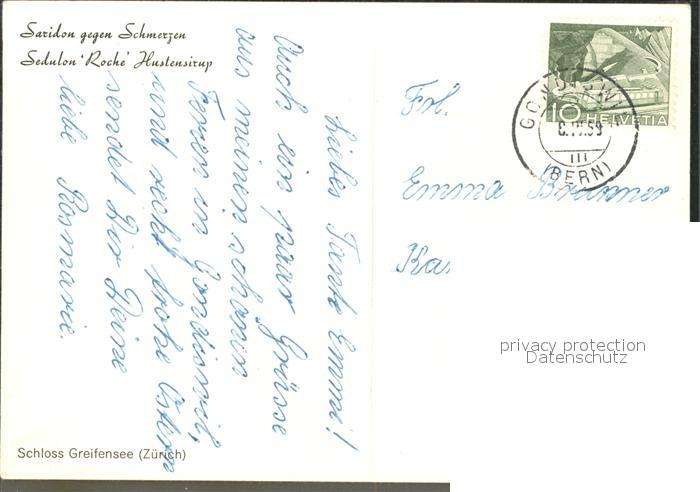 Saridon gegen Schmerzen
Sedulon 'Roche' Hustensirup
Liebes Tante Emmi!
Auch ein paar Grüsse
aus meinen schönen
Ferien in Gondiswil,
und recht frohe Ostern
sendet Dir Deine
liebe Rosmarie.
Schloss Greifensee (Zürich)
10 HELVETIA
GONDISWIL
III
(BERN)
Frl.
Emma Brunner
Ka
privacy protection
Datenschutz